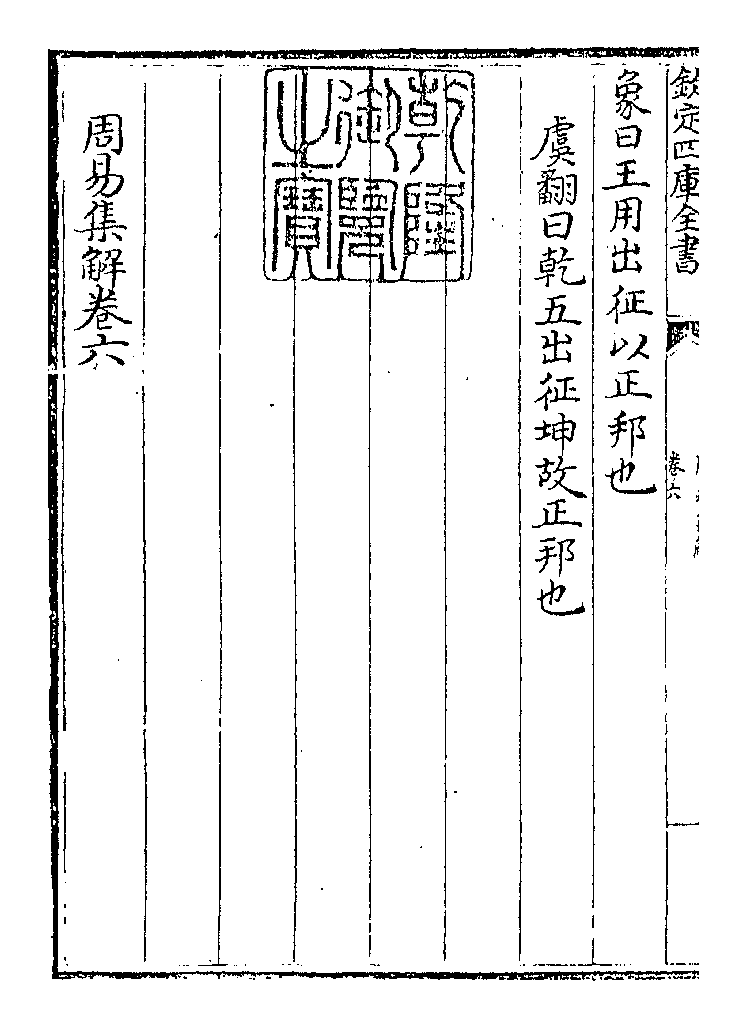 欽定四庫全書
卷六
象曰王用出征以正邦也
虞翻曰乾五出征坤故正邦也
乾隆
御覽
之寶
周易集解卷六